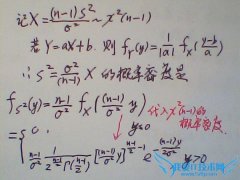 记 X = (n-1)S²/σ² ~ χ²(n-1)
若 Y = aX + b, 则 f_Y(y) = 1/|a| f_X((y-b)/a)
∴ S² = σ²/(n-1) X 的概率密度是
f_{S²}(y) = (n-1)/σ² f_X((n-1)y/σ²)
代入χ²(n-1)的
概率密度
= { 0, y≤0
(n-1)/σ² · 1/(2^{(n-1)/2} Γ((n-1)/2)) [(n-1)y/σ²]^{(n-1)/2 - 1} e^{-(n-1)y/2σ²} y>0